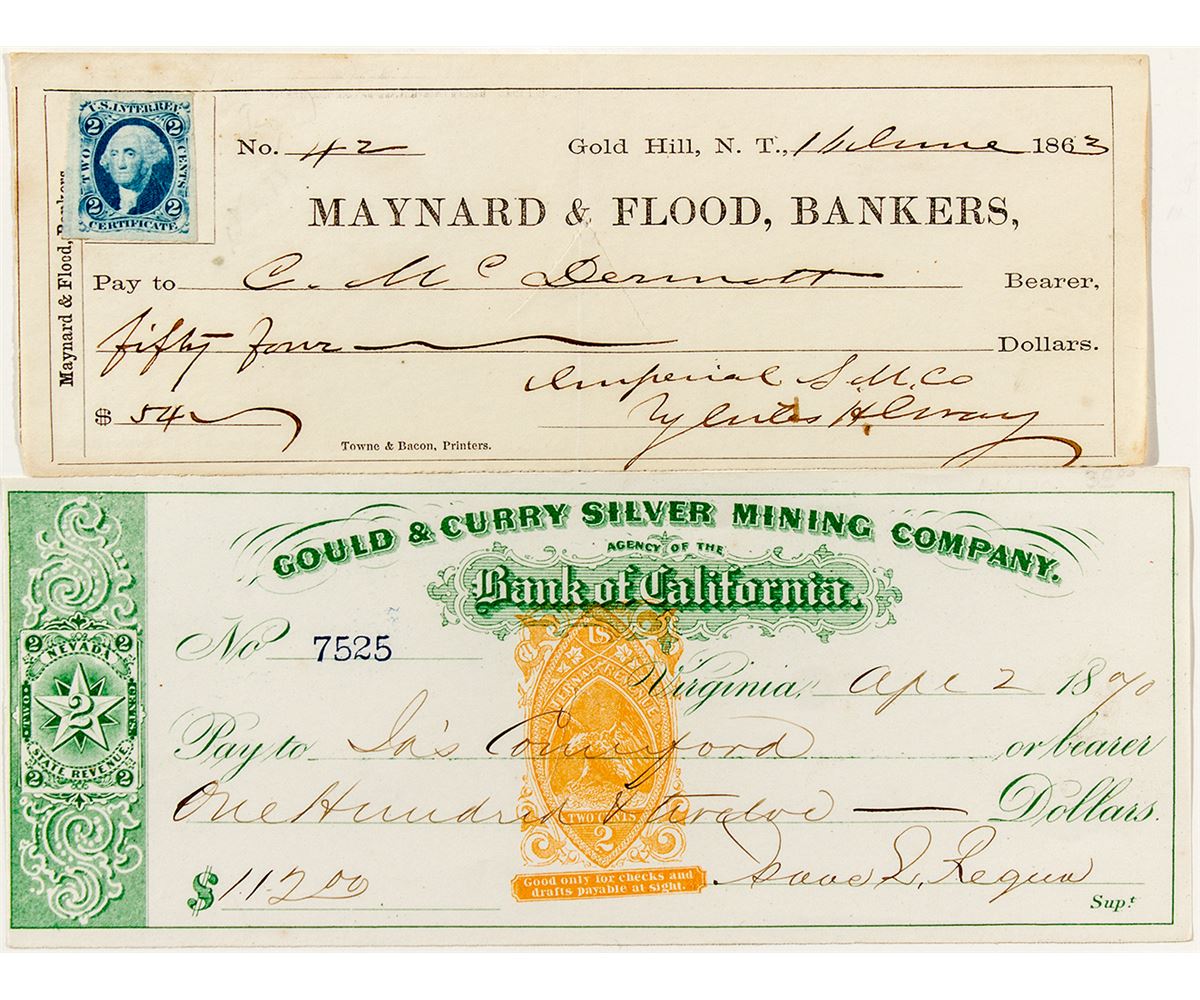 U.S. INTER. REV.
2 2
TWO CENTS
2 2
CERTIFICATE
Maynard & Flood, Bankers
No. 42 Gold Hill, N. T., June 1863
MAYNARD & FLOOD, BANKERS,
Pay to C. McDermott Bearer,
fifty four Dollars.
Imperial S. M. Co
$ 54
Towne & Bacon, Printers.
GOULD & CURRY SILVER MINING COMPANY.
AGENCY OF THE
Bank of California.
No 7525
Virginia, Apl 2 1870
Pay to Jas Comerford or bearer
One Hundred & twelve Dollars.
$ 112 00
Isaac L. Requa
Supt
2 2
NEVADA
TWO 2 CENTS
STATE REVENUE
2 2
US
INTERNAL REVENUE
TWO CENTS
2
Good only for checks and
drafts payable at sight.